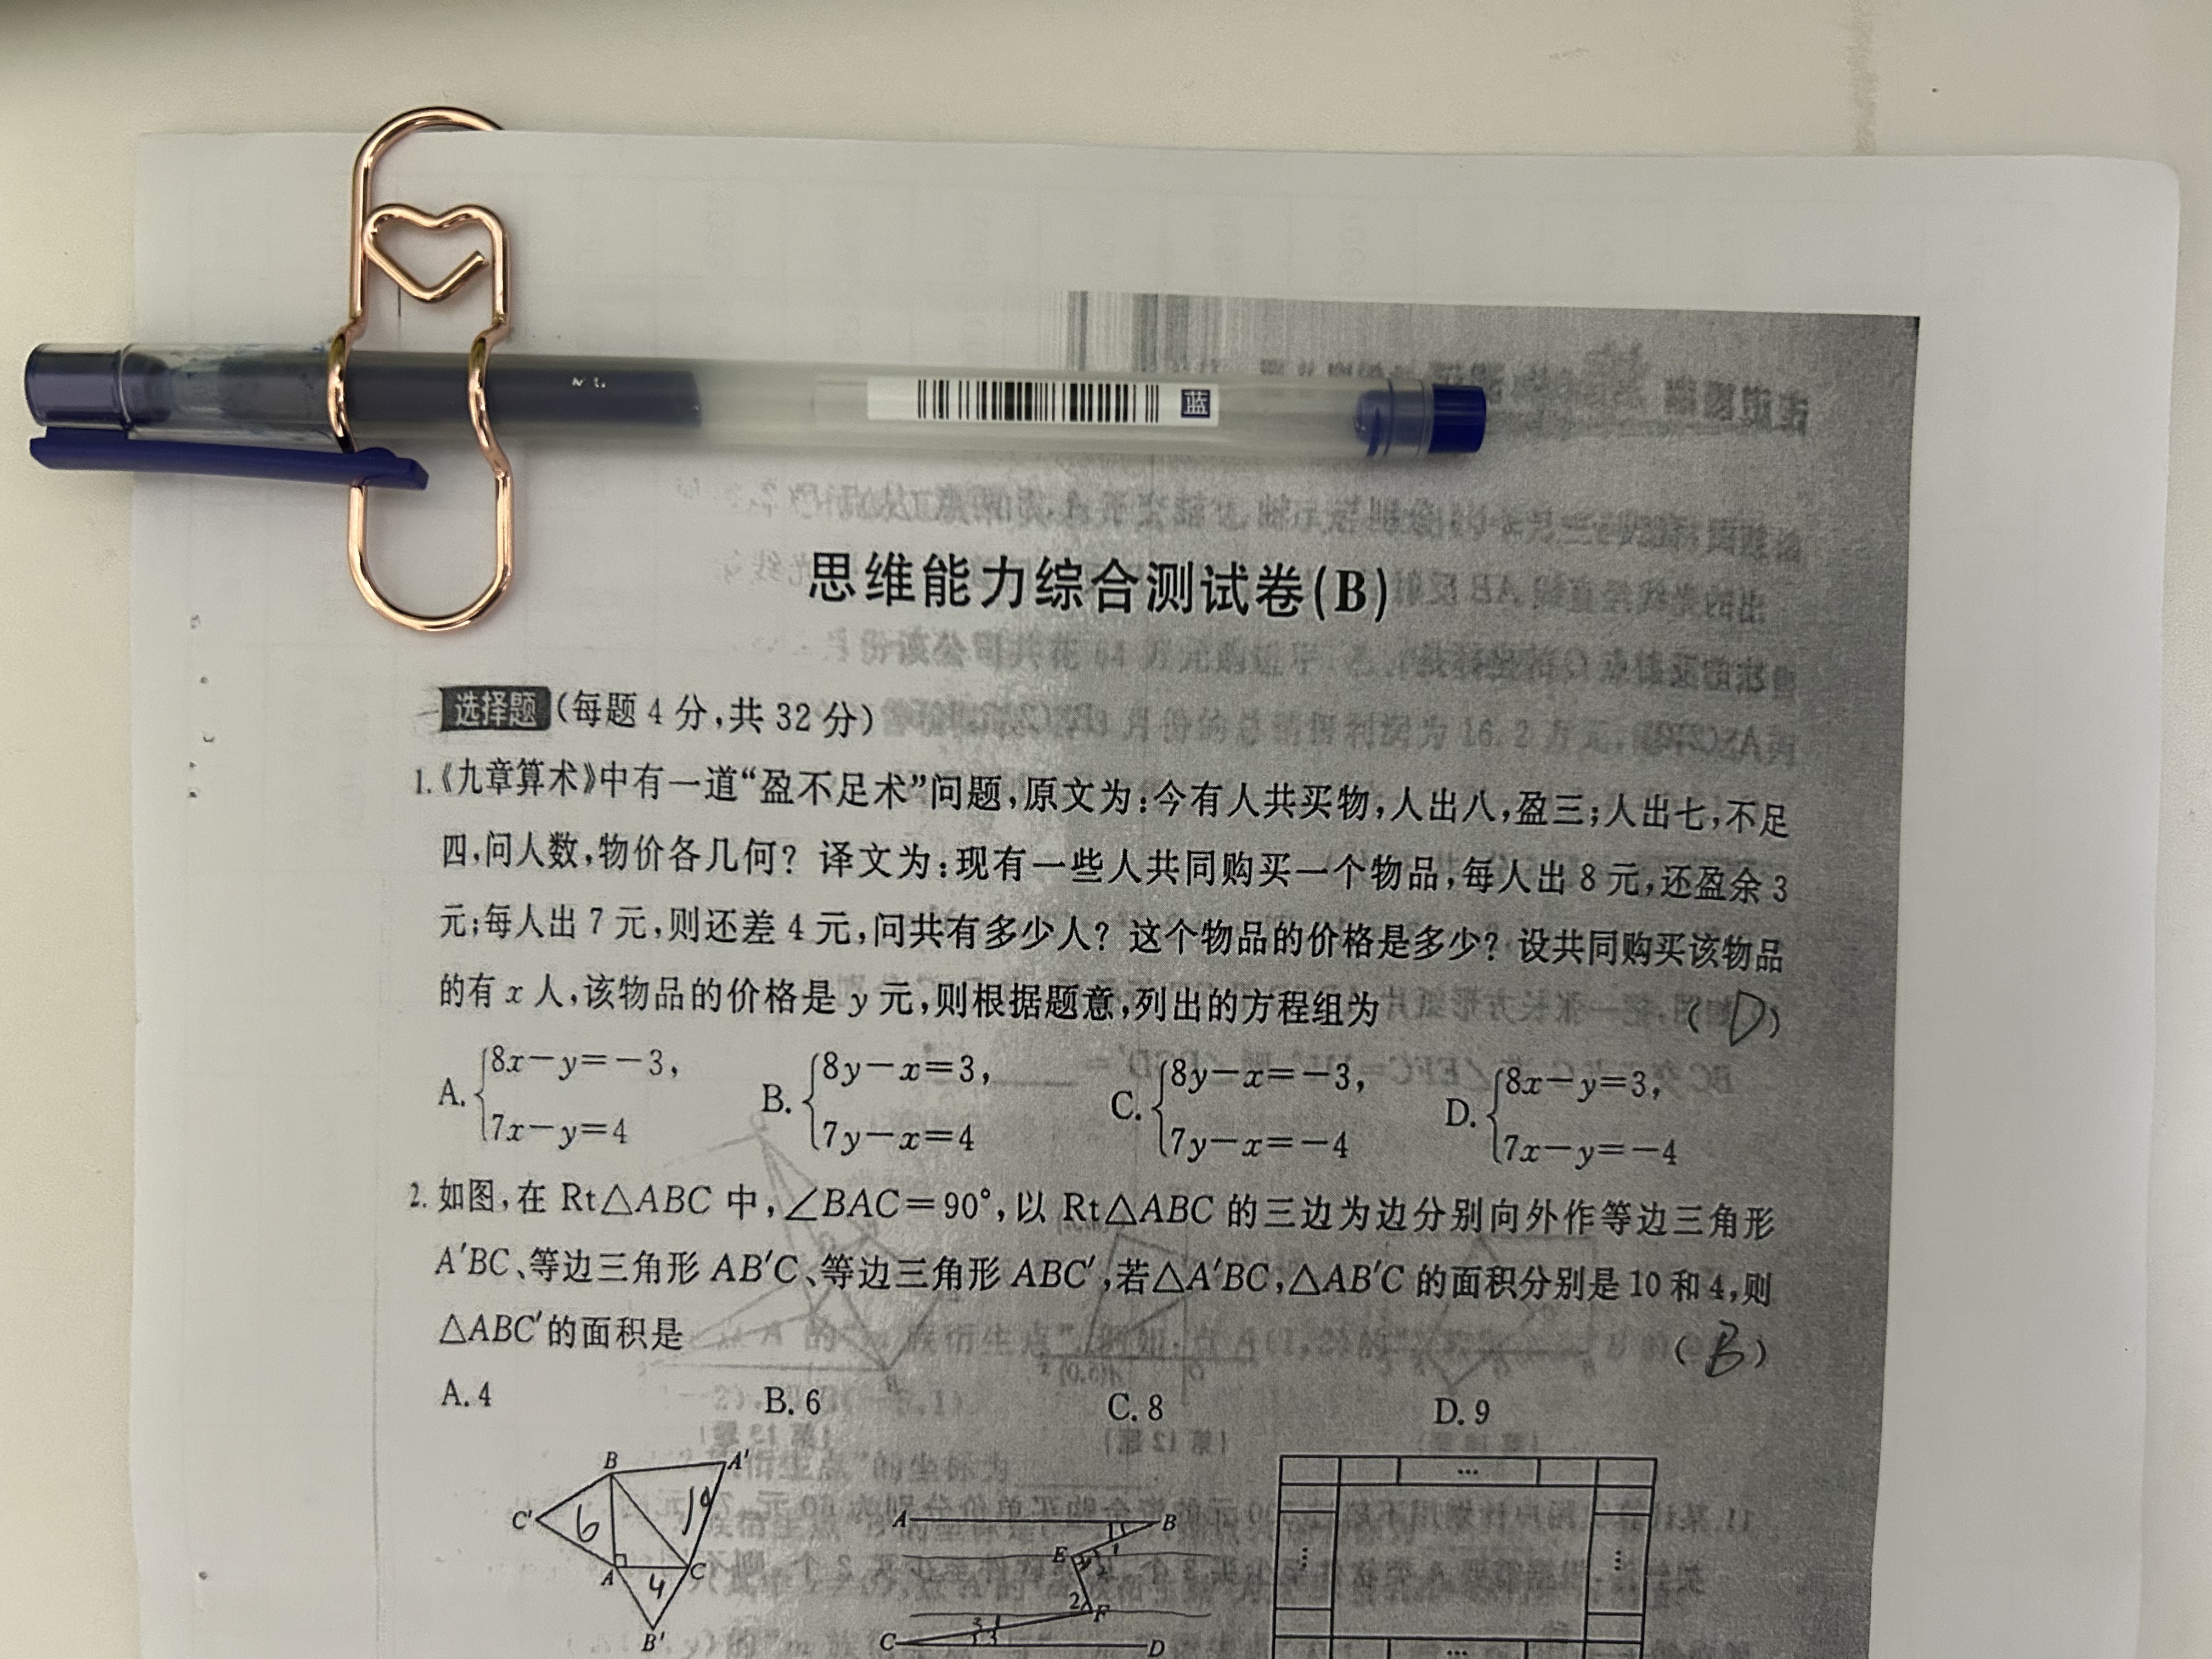 蓝
思维能力综合测试卷(B)
选择题(每题4分,共32分)
1.《九章算术》中有一道“盈不足术”问题,原文为:今有人共买物,人出八,盈三;人出七,不足
四,问人数,物价各几何?译文为:现有一些人共同购买一个物品,每人出8元,还盈余3
元;每人出7元,则还差4元,问共有多少人?这个物品的价格是多少?设共同购买该物品
的有x人,该物品的价格是y元,则根据题意,列出的方程组为 (D)
A. {8x-y=-3, B. {8y-x=3, C. {8y-x=-3, D. {8x-y=3,
7x-y=4 7y-x=4 7y-x=-4 7x-y=-4
2. 如图,在Rt△ABC中,∠BAC=90°,以Rt△ABC的三边为边分别向外作等边三角形
A′BC、等边三角形AB′C、等边三角形ABC′,若△A′BC,△AB′C的面积分别是10和4,则
△ABC′的面积是 (B)
A. 4 B. 6 C. 8 D. 9
B A′
C′ 6 10
A 4 C
B′
A B
E
2 F
C D